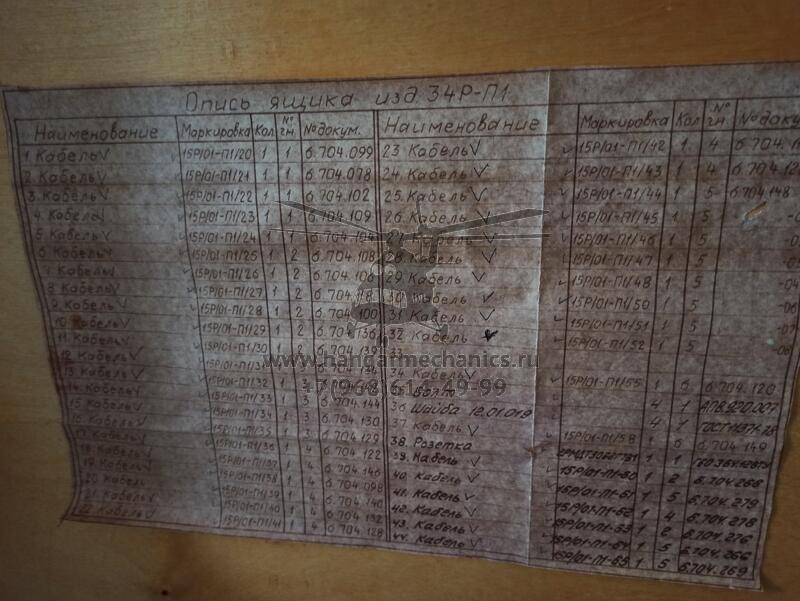 Опись ящика изд 34Р-П1
Наименование Маркировка Кол № гн. № докум. Наименование Маркировка Кол № гн. № докум
1. Кабель 15Р/01-П1/20 1 1 6.704.099 23 Кабель 15Р/01-П1/42 1 4 6.704.
2. Кабель 15Р/01-П1/21 1 1 6.704.078 24. Кабель 15Р/01-П1/43 1 4 6.704.
3. Кабель 15Р/01-П1/22 1 1 6.704.102 25. Кабель 15Р/01-П1/44 1 5 6.704.148
4. Кабель 15Р/01-П1/23 1 1 6.704.109 26. Кабель 15Р/01-П1/45 1 5
5. Кабель 15Р/01-П1/24 1 1 6.704.104 27. Кабель 15Р/01-П1/46 1 5
6. Кабель 15Р/01-П1/25 1 2 6.704.108 28 Кабель 15Р/01-П1/47 1 5
7. Кабель 15Р/01-П1/26 1 2 6.704.106 29. Кабель 15Р/01-П1/48 1 5 -04
8. Кабель 15Р/01-П1/27 1 2 6.704.118 30 Кабель 15Р/01-П1/50 1 5
9. Кабель 15Р/01-П1/28 1 2 6.704.100 31 Кабель 15Р/01-П1/51 1 5
10. Кабель 15Р/01-П1/29 1 2 6.704.136 32 Кабель 15Р/01-П1/52 1 5
11. Кабель 15Р/01-П1/30 1 2 6.704.139 33
12. Кабель 15Р/01-П1/31 34 Кабель 15Р/01-П1/55 1 6 6.704.120
13. Кабель 15Р/01-П1/32 1 3 35 Болт 4 1
14. Кабель 15Р/01-П1/33 1 3 6.704.144 36 Шайба 12.01.019 4 1
15. Кабель 15Р/01-П1/34 1 3 6.704.130 37 Кабель 15Р/01-П1/58 1 6 6.704.149
16. Кабель 15Р/01-П1/35 1 3 6.704.129 38. Розетка 1 1
17. Кабель 15Р/01-П1/36 1 4 6.704.122 39. Кабель 15Р/01-П1-60 1 2 6.704.266
18. Кабель 15Р/01-П1/37 1 4 6.704.146 40. Кабель 15Р/01-П1-61 1 5 6.704.279
19. Кабель 15Р/01-П1/38 1 4 6.704.098 41. Кабель 15Р/01-П1-62 1 4 6.704.278
20. Кабель 15Р/01-П1/39 1 4 6.704.140 42. Кабель 15Р/01-П1-63 1 2 6.704.276
21. Кабель 15Р/01-П1/40 1 4 6.704.132 43. Кабель 15Р/01-П1-64 1 5 6.704.266
22. Кабель 15Р/01-П1/41 1 4 6.704.128 44. Кабель 15Р/01-П1-65 1 5 6.704.269
www.hangarmechanics.ru
+7(968)614-49-99